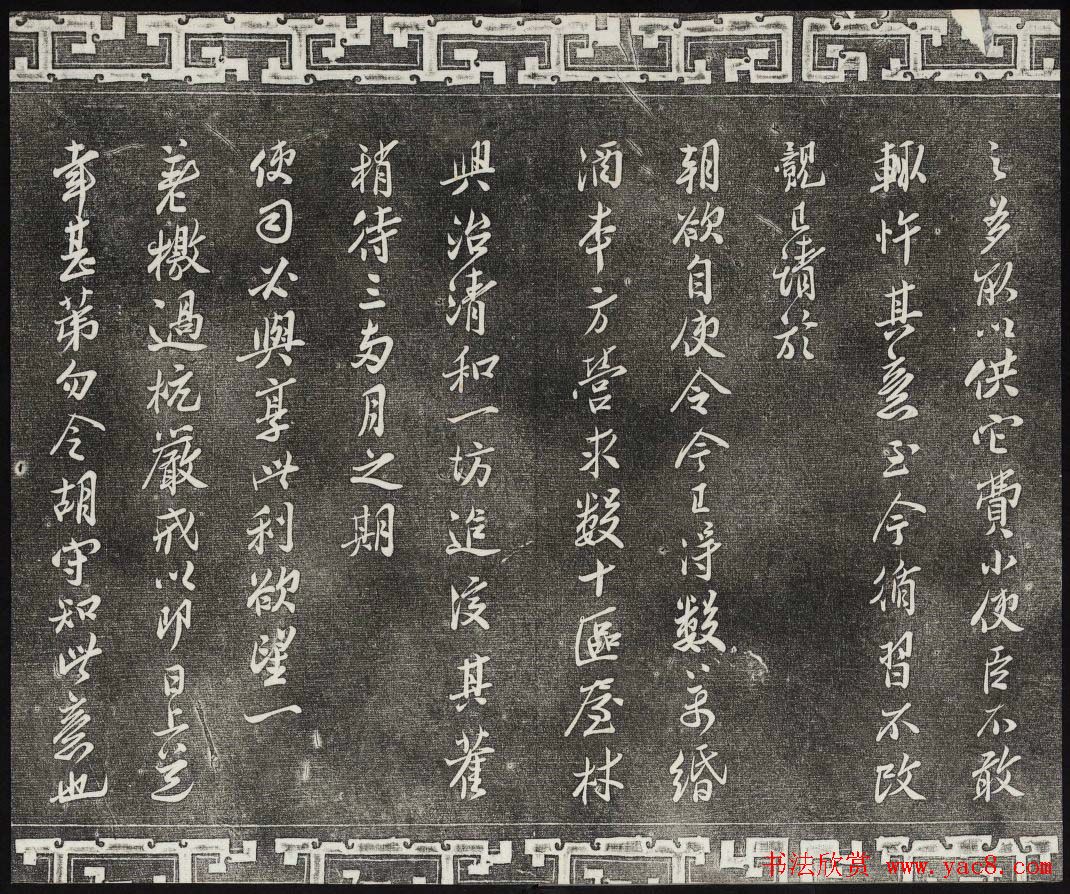 之多取以供它費小使臣不敢
輙忤其意至今循習不改
覿已請於
朝欲自使令今已得數萬緡
酒本方營求數十區屋材
興治清和一坊迨復其舊
稍待三两月之期
使司必與享此利欲望一
檄過杭嚴戒以即日上道
幸甚第勿令胡守知此意也
书法欣赏 www.yac8.com